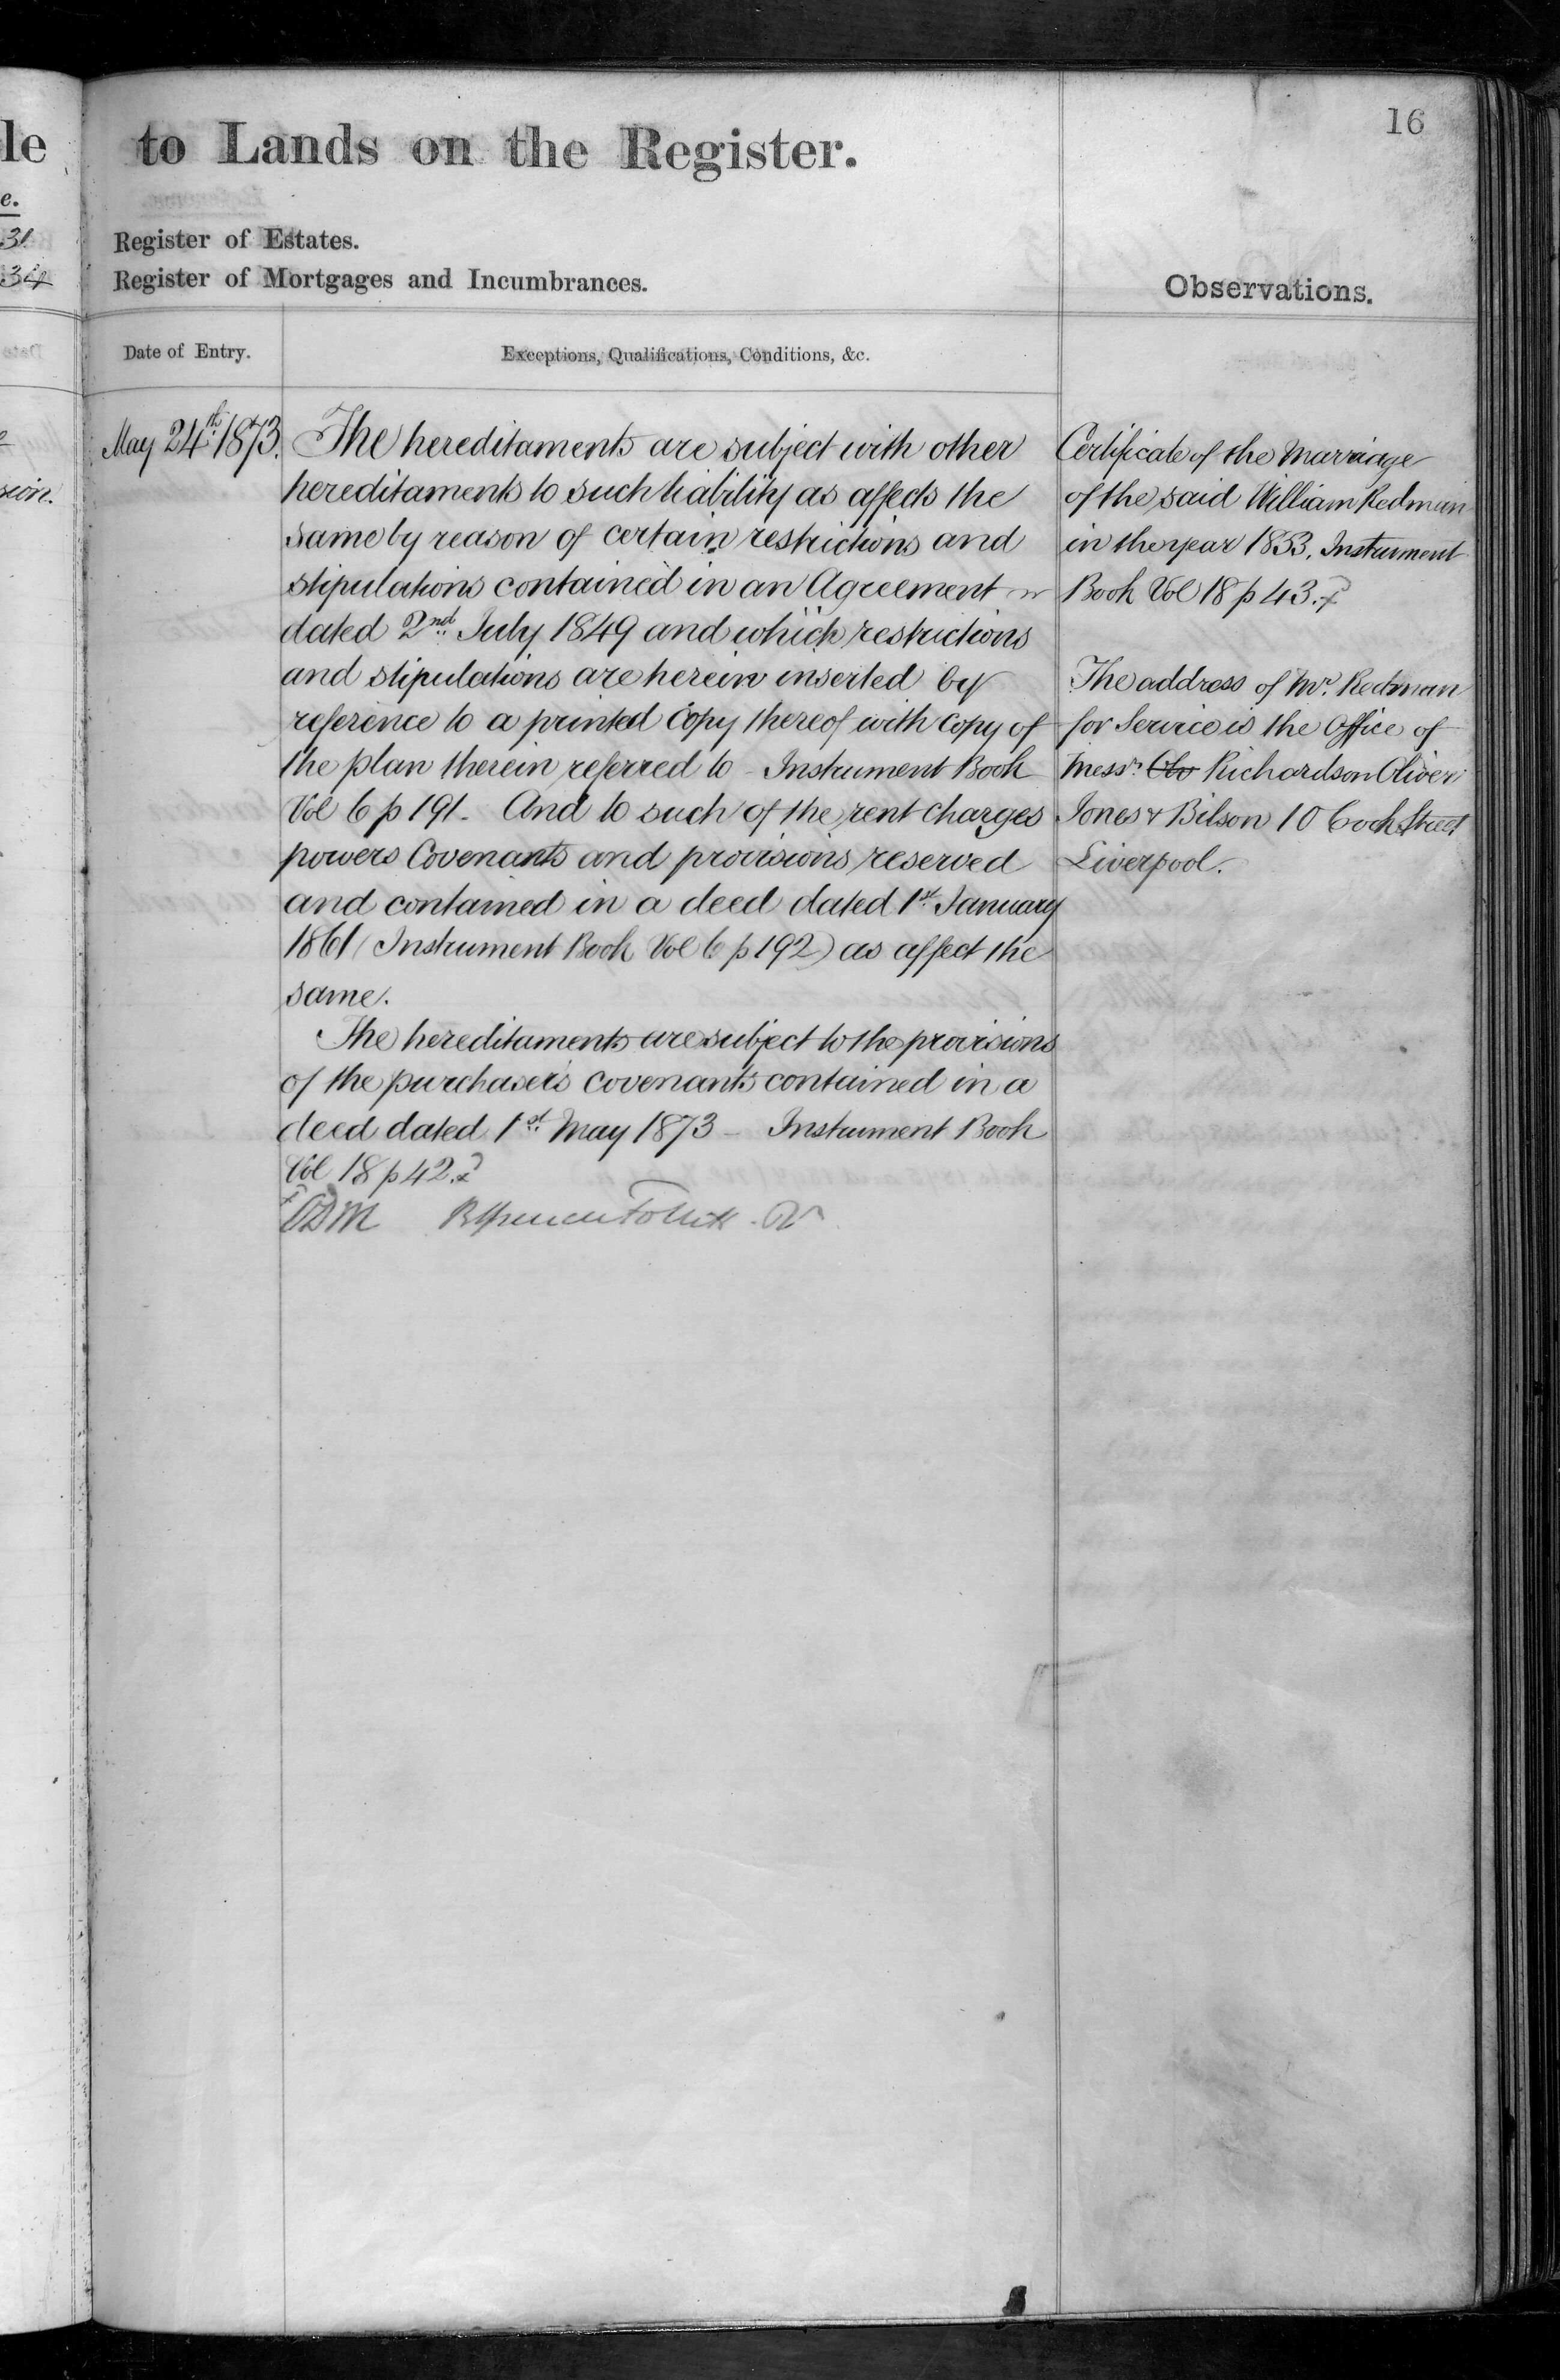 le
e.
31
34
sion.
16
to Lands on the Register.
Register of Estates.
Register of Mortgages and Incumbrances.
Observations.
Date of Entry.
Exceptions, Qualifications, Conditions, &c.
May 24th 1873.
The hereditaments are subject with other
hereditaments to such liability as affects the
same by reason of certain restrictions and
stipulations contained in an Agreement
dated 2nd July 1849 and which restrictions
and stipulations are herein inserted by
reference to a printed Copy thereof with copy of
the plan therein referred to - Instrument Book
Vol 6 p 191. And to such of the rent charges
powers Covenants and provisions reserved
and contained in a deed dated 1st January
1861 (Instrument Book Vol 6 p 192) as affect the
same.
The hereditaments are subject to the provisions
of the purchasers covenants contained in a
deed dated 1st May 1873 - Instrument Book
Vol 18 p 42.
Certificate of the Marriage
of the said William Redman
in the year 1853. Instrument
Book Vol 18 p 43.
The address of Mr. Redman
for Service is the Office of
Messrs. Richardson Oliver
Jones & Bilson 10 Cook Street
Liverpool.